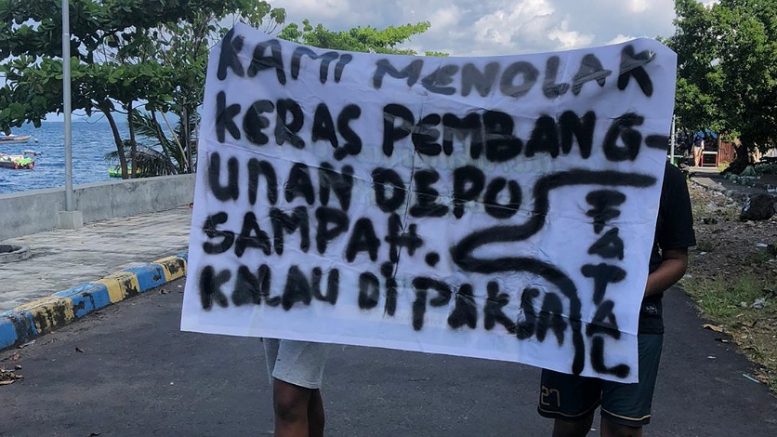 KAMI MENOLAK
KERAS PEMBANG-
UNAN DEPO
SAMPAH.
KALAU DI PAKSA
FATAL
27